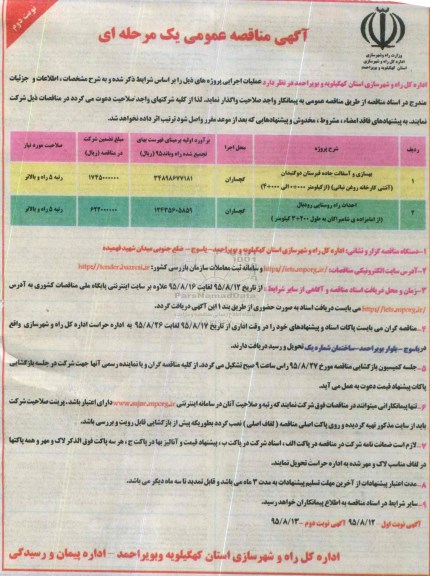 نوبت دوم
آگهی مناقصه عمومی یک مرحله ای
وزارت راه و شهرسازی
اداره کل راه و شهرسازی
استان کهگیلویه و بویراحمد
اداره کل راه و شهرسازی استان کهگیلویه و بویراحمد در نظر دارد عملیات اجرایی پروژه های ذیل را بر اساس شرایط ذکر شده و به شرح مشخصات، اطلاعات و جزئیات
مندرج در اسناد مناقصه از طریق مناقصه عمومی به پیمانکار واجد صلاحیت واگذار نماید. لذا از کلیه شرکتهای واجد صلاحیت دعوت می گردد در مناقصات ذیل شرکت
نمایند. به پیشنهادهای فاقد امضاء، مشروط، مخدوش و پیشنهادهایی که بعد از موعد مقرر واصل شود ترتیب اثر داده نخواهد شد.
ردیف شرح پروژه محل اجرا برآورد اولیه بر مبنای فهرست بهای تجمیع شده راه و باند ۹۵ (ریال) مبلغ تضمین شرکت در مناقصه (ریال) صلاحیت مورد نیاز
۱ بهسازی و آسفالت جاده قبرستان دوگنبدان گچساران ۳۴۸۹۸۶۷۷۱۸۱ ۱۷۴۵۰۰۰۰۰۰ رتبه ۵ راه و بالاتر
۲ احداث راه روستایی گچساران ۱۲۴۳۵۶۰۵۸۵۹ ۶۲۲۰۰۰۰۰۰ رتبه ۵ راه و بالاتر
۱- دستگاه مناقصه گزار و نشانی: اداره کل راه و شهرسازی استان کهگیلویه و بویراحمد- یاسوج - ضلع جنوبی میدان شهید فهمیده
۲- آدرس سایت الکترونیکی مناقصات: http://iets.mporg.ir و سامانه ثبت معاملات سازمان بازرسی کشور:
۳- زمان و محل دریافت اسناد مناقصه و آگاهی از سایر شرایط: از تاریخ ۹۵/۸/۱۲ لغایت ۹۵/۸/۱۶ علاوه بر سایت اینترنتی پایگاه ملی مناقصات کشوری به آدرس
http://iets.mporg.ir می بایست دریافت اسناد به صورت حضوری از طریق بند ۱ این آگهی دریافت گردد.
۴- مناقصه گران می بایست پاکات اسناد و پیشنهادهای خود را در وقت اداری از تاریخ ۹۵/۸/۱۷ لغایت ۹۵/۸/۲۶ به اداره حراست اداره کل راه و شهرسازی واقع
در یاسوج - بلوار بویراحمد-ساختمان شماره یک تحویل و رسید دریافت دارند.
۵- جلسه کمیسیون بازگشایی مناقصه مورخ ۹۵/۸/۲۷ راس ساعت ۹ صبح تشکیل می گردد. از کلیه مناقصه گران و یا نماینده رسمی آنها جهت شرکت در جلسه بازگشایی
پاکات پیشنهاد قیمت دعوت به عمل می آید.
۶- تنها پیمانکارانی میتوانند در مناقصات فوق شرکت نمایند که رتبه و صلاحیت آنان در سامانه اینترنتی دارای اعتبار باشد. پرینت صلاحیت شرکت
باید از سایت مذکور تهیه گردیده و روی پاکت اصلی مناقصه (لفاف اصلی) نصب گردد بطوریکه پیش از بازگشایی قابل رویت و بررسی باشد.
۷- لازم است ضمانت نامه شرکت در مناقصه در پاکت الف، اسناد شرکت در پاکت ب، پیشنهاد قیمت و آنالیز بها در پاکت ج، هر سه پاکت فوق الذکر لاک و مهر و همه پاکتها
در لفاف مناسب لاک و مهر شده به اداره حراست تحویل نمایند.
۸- مدت اعتبار پیشنهادات از آخرین مهلت تسلیم پیشنهادات به مدت ۳ ماه می باشد و قابل تمدید تا سه ماه دیگر می باشد.
۹- سایر شرایط در اسناد مناقصه به اطلاع پیمانکاران خواهد رسید.
آگهی نوبت اول - ۹۵/۸/۱۲ آگهی نوبت دوم - ۹۵/۸/۱۳
اداره کل راه و شهرسازی استان کهگیلویه وبویراحمد - اداره پیمان و رسیدگی